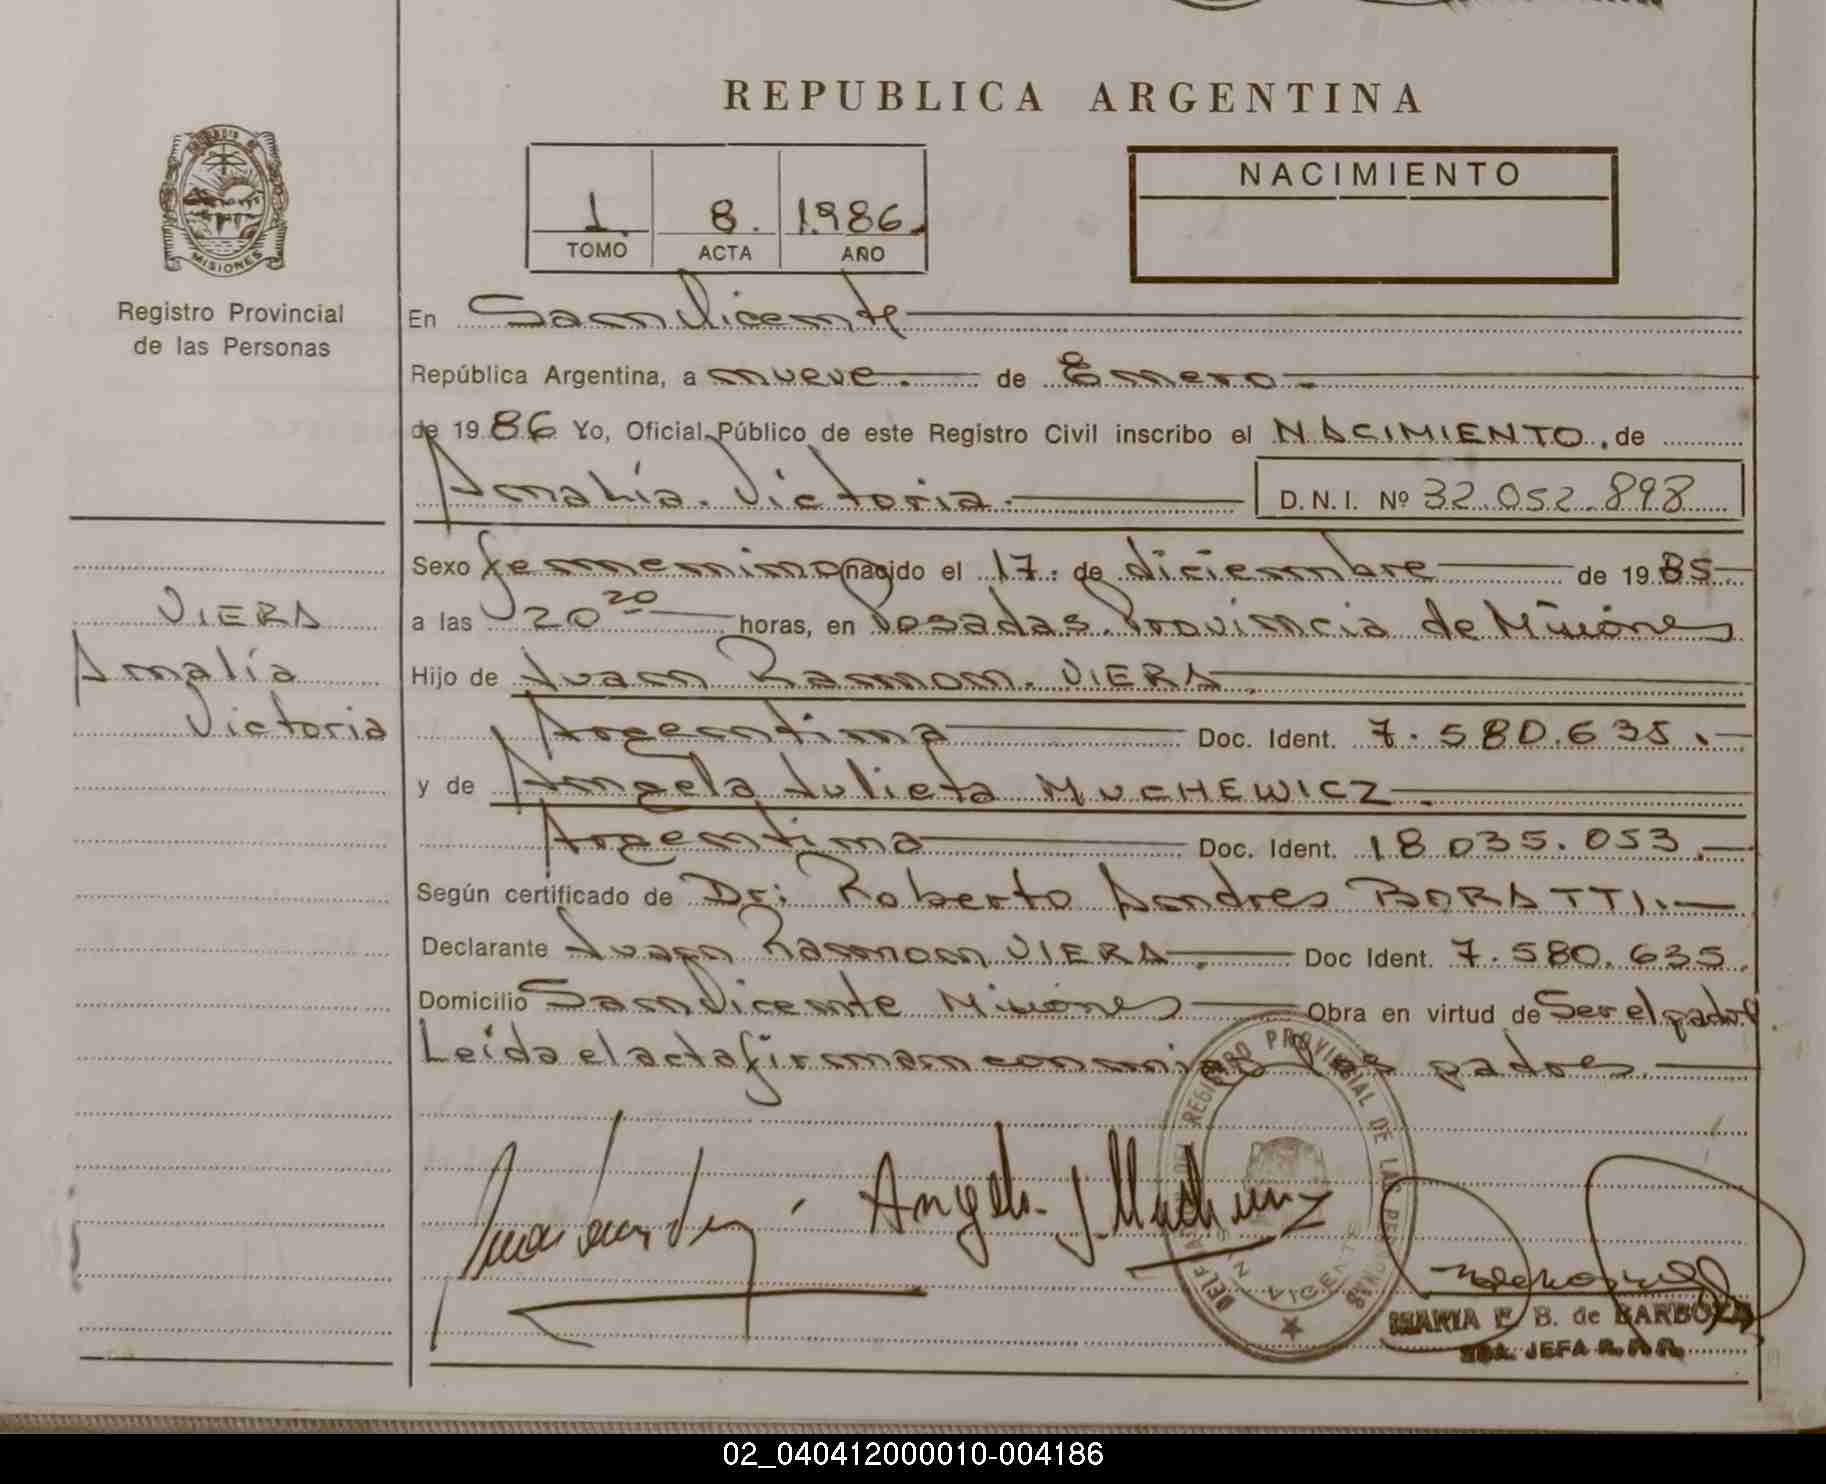 REPUBLICA ARGENTINA
MISIONES
Registro Provincial
de las Personas
1. 8. 1.986.
TOMO ACTA AÑO
NACIMIENTO
En San Vicente
República Argentina, a nueve. de Enero.
de 1986 Yo, Oficial Público de este Registro Civil inscribo el NACIMIENTO, de
Amalía. Victoria. D.N.I. Nº 32.052.898
Sexo femenino nacido el 17. de diciembre de 1985
a las 20 20 horas, en Posadas. Provincia de Misiones
Hijo de Juan Ramon. VIERA
Argentina Doc. Ident. 7.580.635.
y de Angela Julieta MUCHEWICZ.
Argentina Doc. Ident. 18.035.053.
Según certificado de Dr: Roberto Andres BORATTI.
Declarante Juan Ramon VIERA. Doc Ident. 7.580.635.
Domicilio San Vicente Misiones Obra en virtud de Ser el padre
Leída el acta firman conmigo los padres.
VIERA
Amalía
Victoria
Angela J. Muchewicz
REGISTRO PROVINCIAL DE LAS PERSONAS
VICENTE
MARIA E. B. de BARBOZA
JEFA R.P.P.
02_040412000010-004186